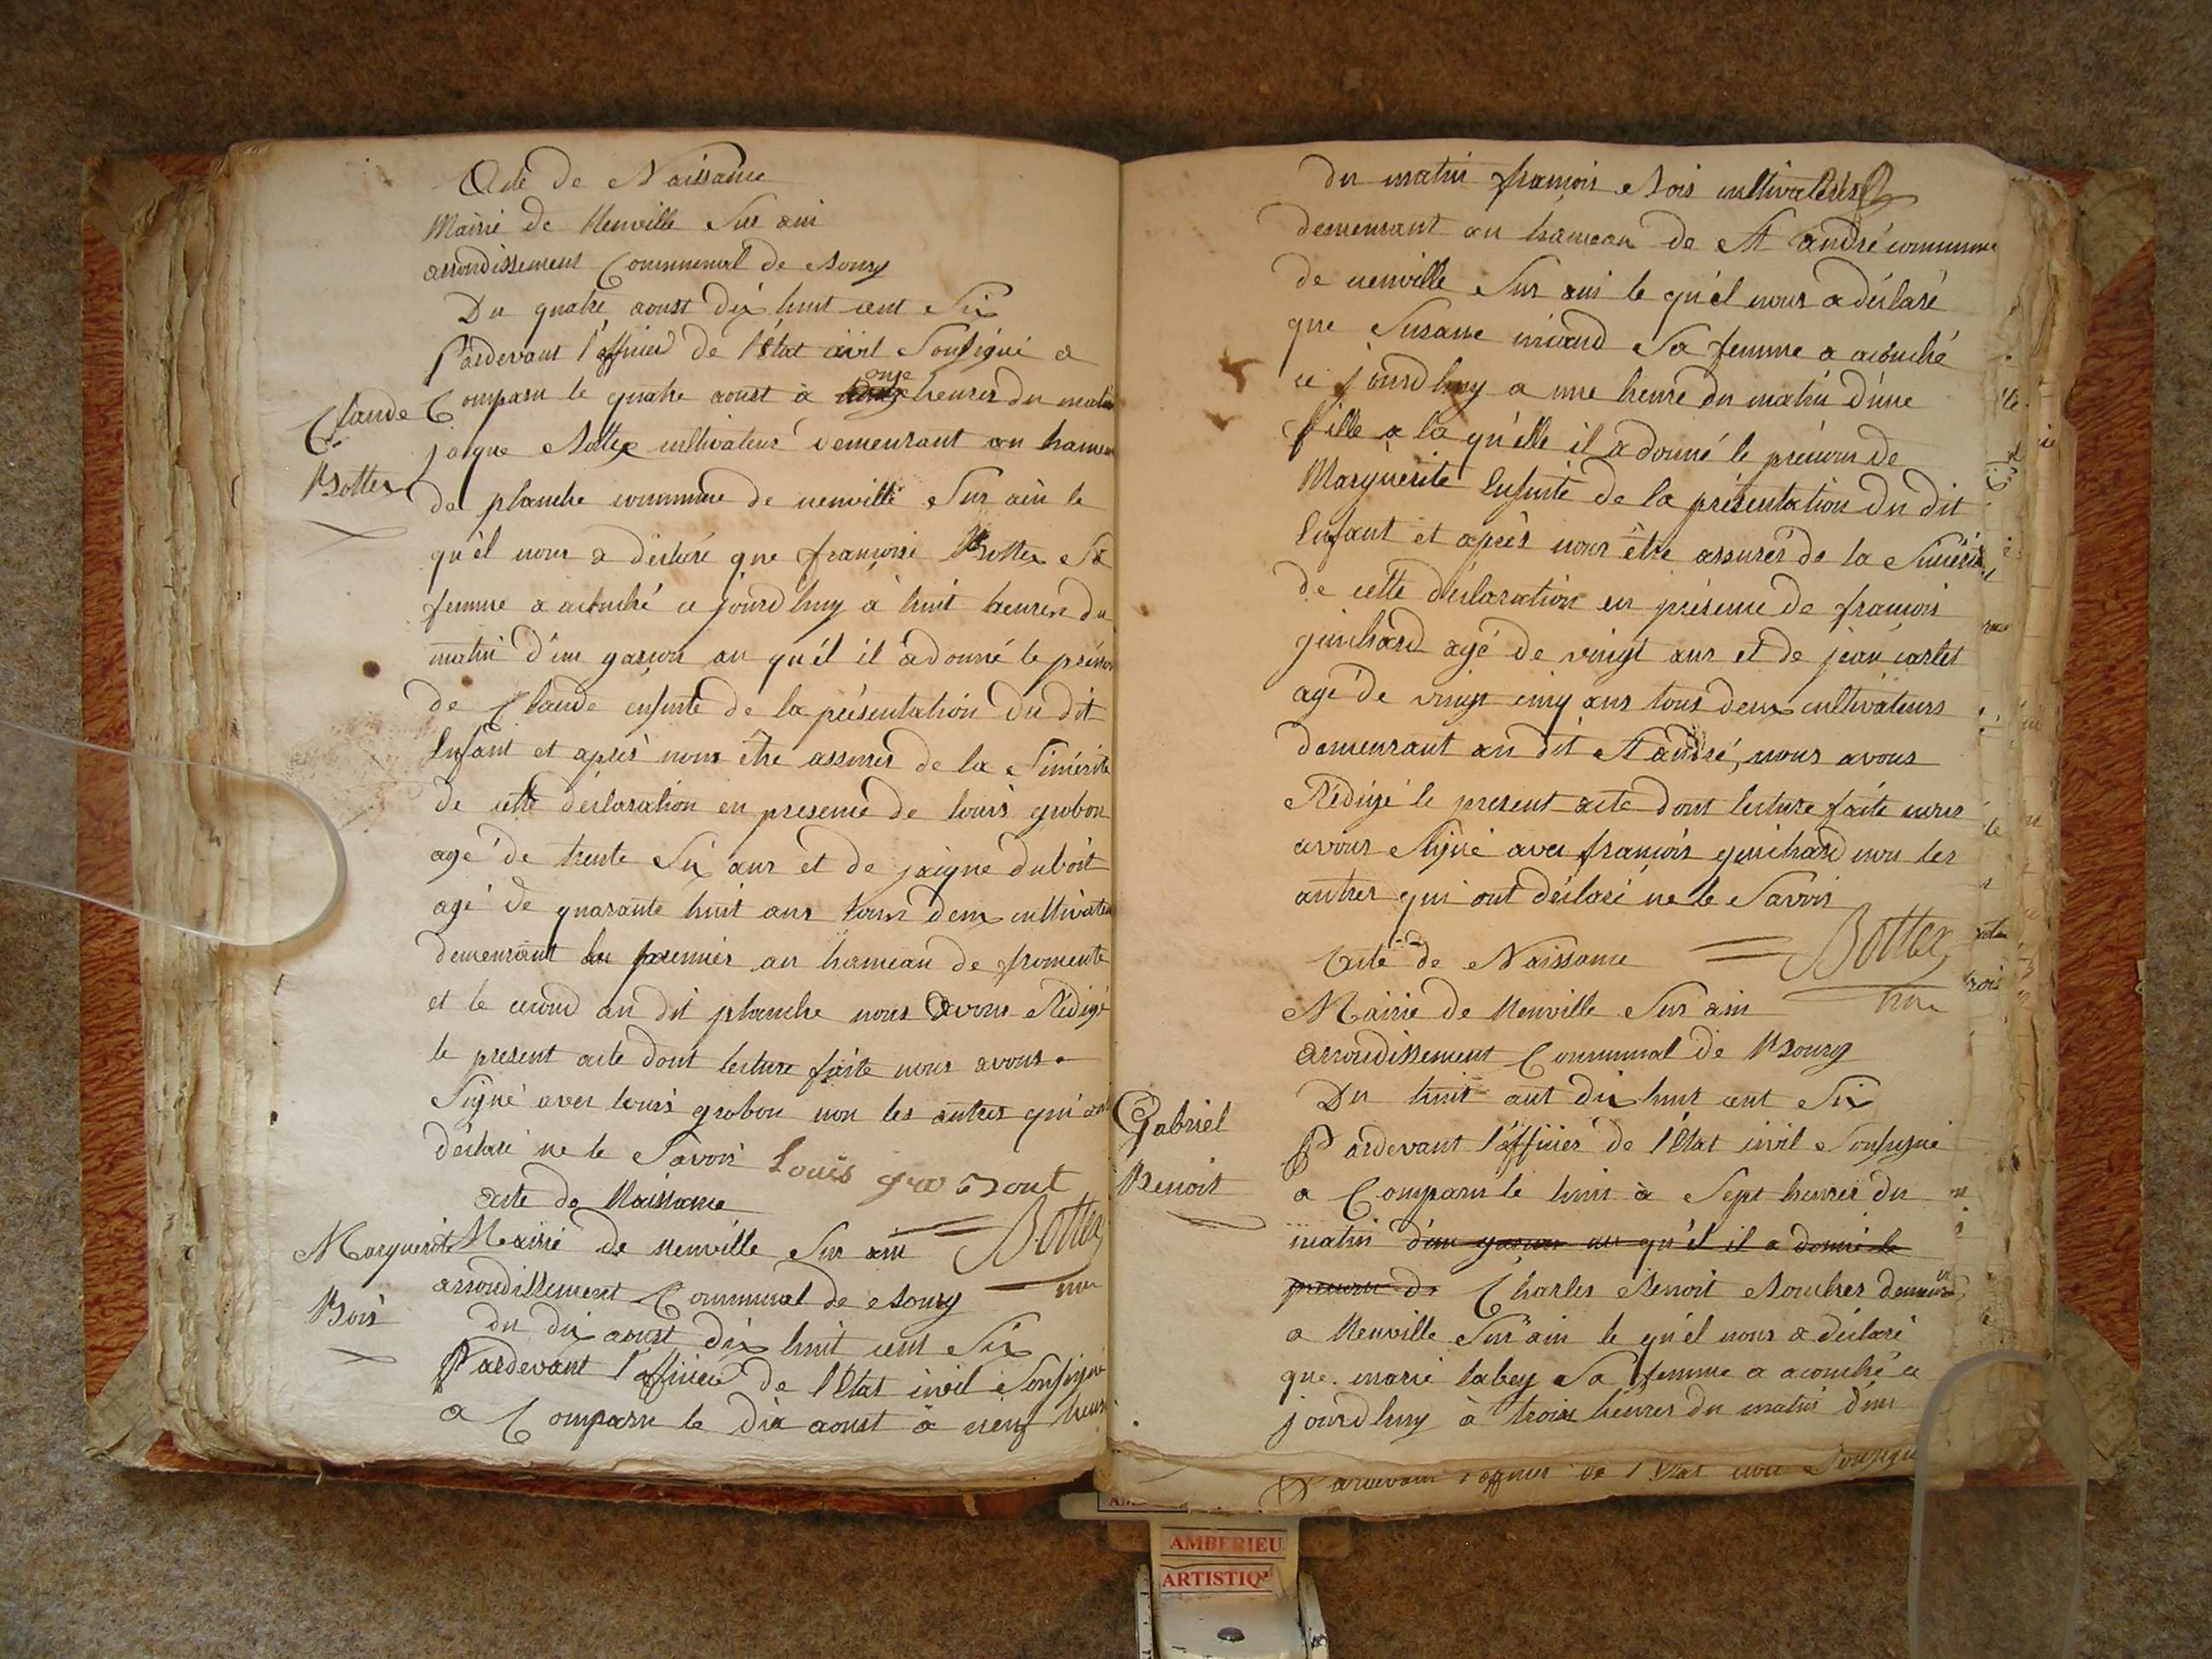 Acte de Naissance
Mairie de Neuville Sur ain
arrondissement Communal de Bourg
Du quatre aoust dix huit cent Six
Pardevant l'officier de l'état civil Soussigné a
Comparu le quatre aoust à onze heures du matin
Claude
Bottex
jaque Bottex cultivateur demeurant au hameau
de planche commune de neuville Sur ain le
qu'él nous a déclaré que francoise Bottex Sa
femme a acouché ce jourd'huy à huit heures du
matin d'un garçon au qu'él il a donné le prénom
de Claude ensuite de la présentation du dit
Enfant et après nous être assurés de la Sincérité
de cette déclaration en presence de louis grobon
agé de trente Six ans et de jaique duboit
agé de quarante huit ans tous deux cultivateurs
demeurant le premier au hameau de fromente
et le cecond au dit planche nous avons Rédigé
le present acte dont lecture faite nous avons
Signé avec louis grobon non les autres qui ont
déclaré ne le Savoir
Louis
Bottex
acte de Naissance
Marguerite
Bois
Mairie de Neuville Sur ain
arrondissement Communal de Bourg
du dix aoust dix huit cent Six
Pardevant l'officier de l'Etat civil Soussigné
a Comparu le dix aoust à neuf heures
du matin françois Bois cultivateur
demeurant au hameau de St andré commune
de neuville Sur ain le qu'él nous a déclaré
que Susanne Sa femme a acouché
ce jourd'huy a une heure du matin d'une
fille a la qu'élle il a donné le prénom de
Marguerite Ensuite de la présentation du dit
Enfant et après nous être assurés de la Sincérité
de cette déclaration en présence de françois
guichard agé de vingt ans et de jean carlet
agé de vingt cinq ans tous deux cultivateurs
demeurant au dit St andré, nous avons
Rédigé le present acte dont lecture faite nous
avons Signé avec françois guichard non les
autres qui ont déclaré ne le Savoir
Bottex
Acte de Naissance
Mairie de Neuville Sur ain
arrondissement Communal de Bourg
Du huit aut dix huit cent Six
Gabriel
Benoit
Pardevant l'officier de l'Etat civil Soussigné
a Comparu le huit à Sept heures du
matin d'un garçon au qu'él il a donné le
prenom de Charles Benoit demeurant
a Neuville Sur ain le qu'él nous a déclaré
que marie labey Sa femme a acouché ce
jourd'huy à trois heures du matin d'un
Pardevant l'officier de l'Etat civil Soussigné
AMBERIEU
ARTISTIQ